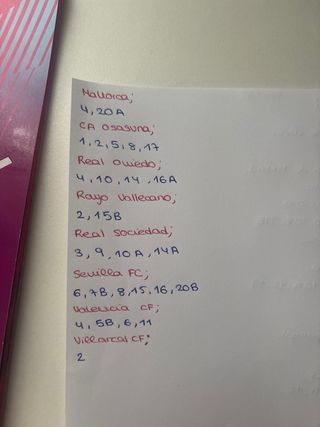 Mallorca;
4, 20A
CA Osasuna;
1, 2, 5, 8, 17
Real Oviedo;
4, 10, 14, 16A
Rayo Vallecano;
2, 15B
Real Sociedad;
3, 9, 10A, 14A
Sevilla FC;
6, 7B, 8, 15, 16, 20B
Valencia CF;
4, 5B, 6, 11
Villarcal CF;
2